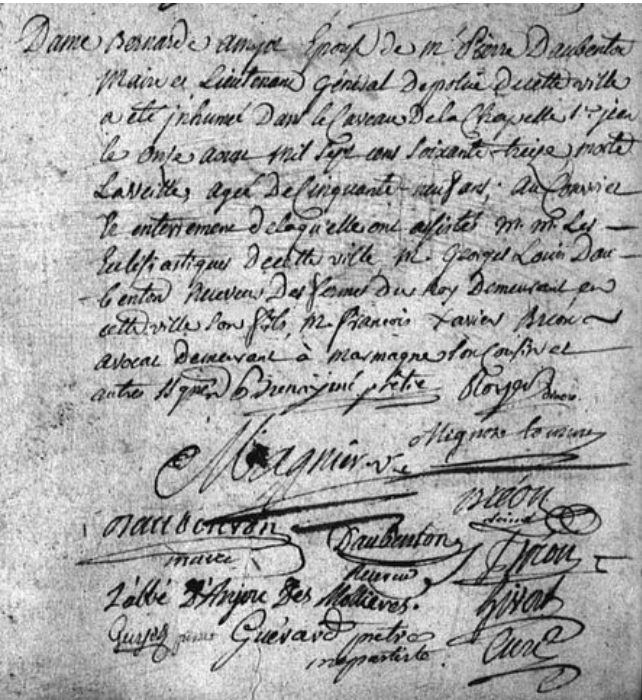 Dame Bernarde amyot Epouse de mr Pierre Daubenton
Maire et Lieutenant général de police de cette ville
a été inhumée Dans le Caveau De la Chapelle St jean
le onze aout mil sept cens soixante-treize, morte
La veille, ageé De Cinquante-neuf ans; au Convoi et
enterrement de laquelle ont assistés mr. mr. Les
Eclesiastiques de cette ville mr. Georges Louis Dau-
benton Receveur Des fermes Du Roy Demeurant en
cette ville Son fils, mr. francois Xavier Bréon
avocat Demeurant à marmagne son Cousin et
autres pretre
Mignot
Magnien
Daubenton Bréon
maire Daubenton Bréon
L'abbé D'Anjou Des Mollieves.
Guérard pretre
mepartiste. Curé